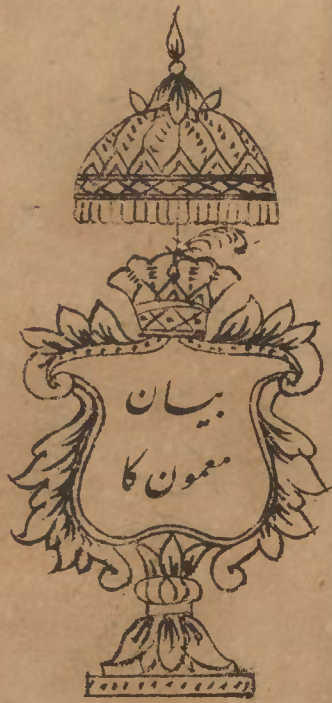 بیان
معمون کا